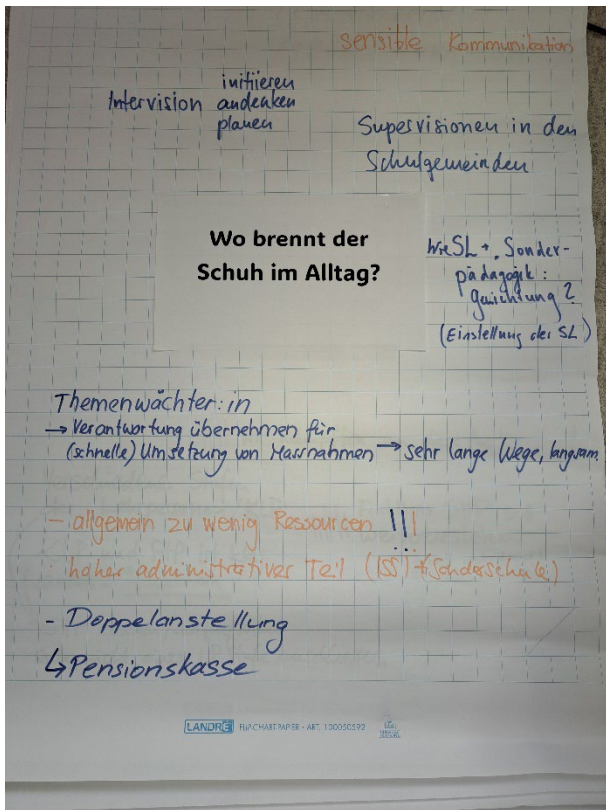 sensible Kommunikation
initiieren
Intervision andenken
planen
Supervisionen in den
Schulgemeinden
Wo brennt der
Schuh im Alltag?
Wie SL + Sonder-
pädagogik:
?
(Einstellung der SL)
Themenwächter:in
→ Verantwortung übernehmen für
(schnelle) Umsetzung von Massnahmen → sehr lange Wege, langsam.
- allgemein zu wenig Ressourcen !!!
- hoher administrativer Teil (ISS) + (Sonderschule)
- Doppelanstellung
↳ Pensionskasse
LANDRÉ FLIPCHARTPAPIER - ART. 100050592